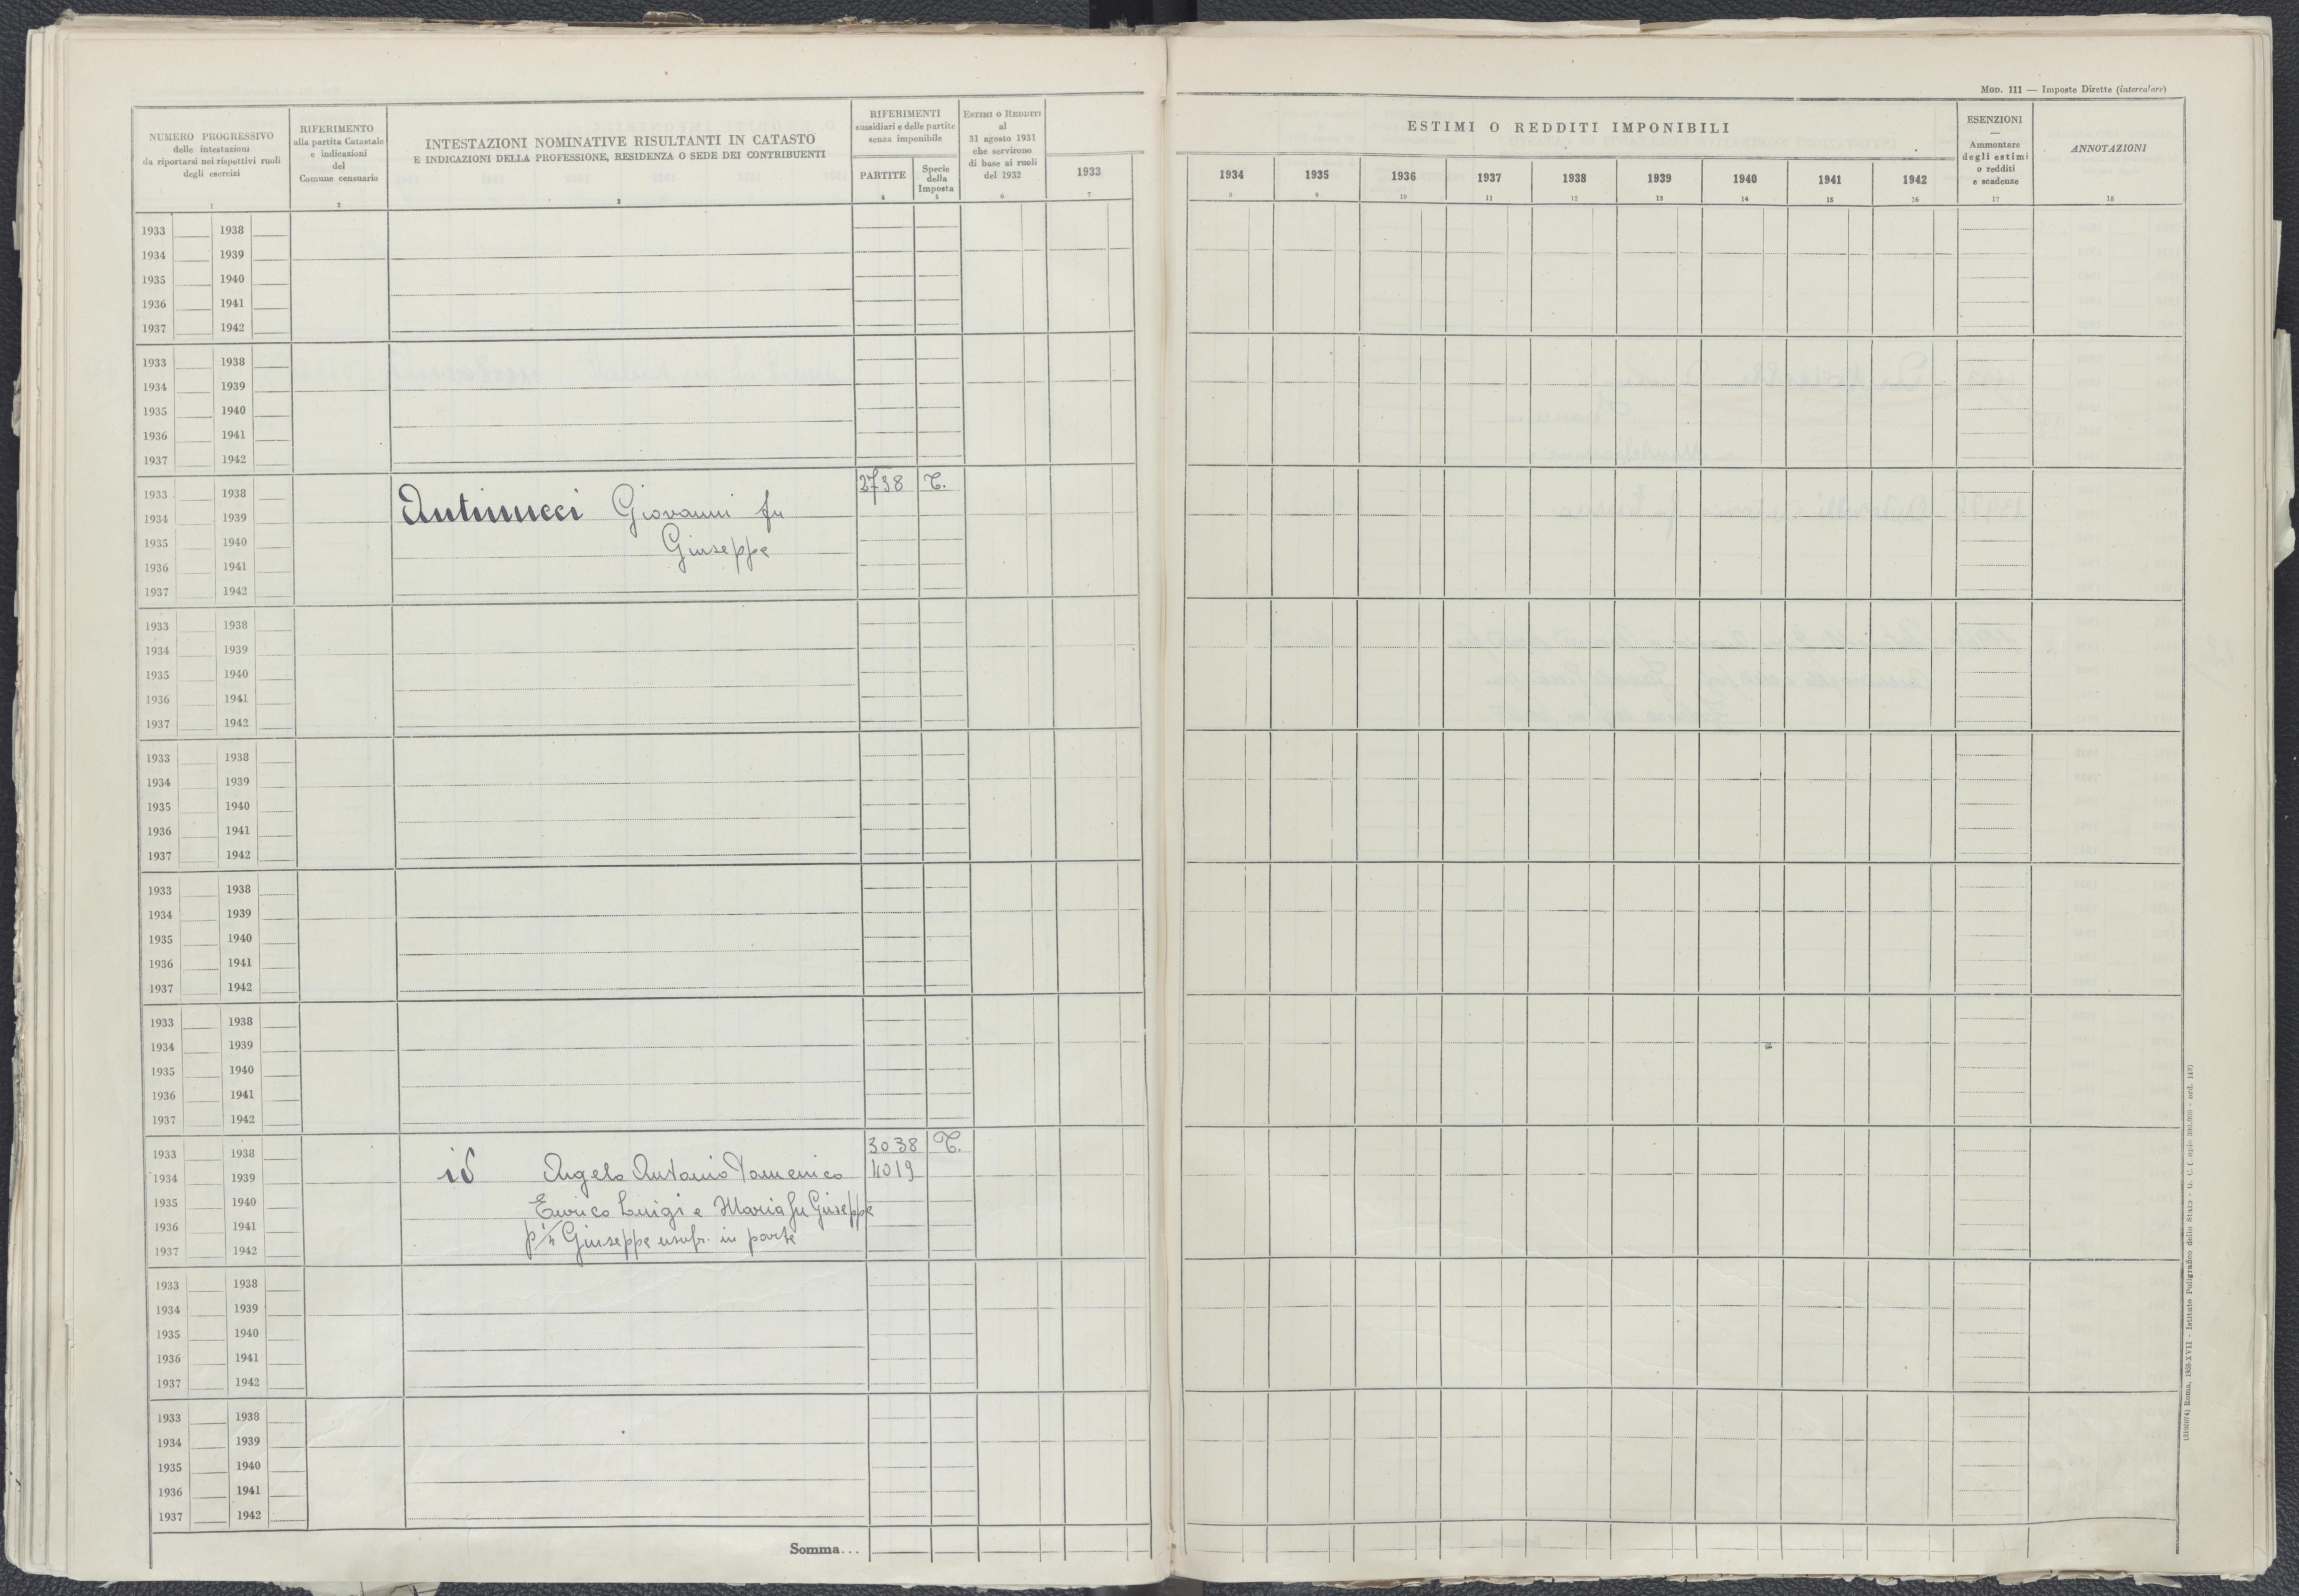 Mod. 111 — Imposte Dirette (intercalare)
NUMERO PROGRESSIVO
delle intestazioni
da riportarsi nei rispettivi ruoli
degli esercizi
1
RIFERIMENTO
alla partita Catastale
e indicazioni
del
Comune censuario
2
INTESTAZIONI NOMINATIVE RISULTANTI IN CATASTO
E INDICAZIONI DELLA PROFESSIONE, RESIDENZA O SEDE DEI CONTRIBUENTI
3
RIFERIMENTI
sussidiari e delle partite
senza imponibile
PARTITE
4
Specie
della
Imposta
5
Estimi o Redditi
al
31 agosto 1931
che servirono
di base ai ruoli
del 1932
6
1933
7
ESTIMI O REDDITI IMPONIBILI
1934 1935 1936 1937 1938 1939 1940 1941 1942
8 9 10 11 12 13 14 15 16
ESENZIONI
—
Ammontare
degli estimi
o redditi
e scadenze
17
ANNOTAZIONI
18
1933 1938
1934 1939
1935 1940
1936 1941
1937 1942
1933 1938
1934 1939
1935 1940
1936 1941
1937 1942
2738 T.
1933 1938
1934 1939 Antinucci Giovanni fu
1935 1940 Giuseppe
1936 1941
1937 1942
1933 1938
1934 1939
1935 1940
1936 1941
1937 1942
1933 1938
1934 1939
1935 1940
1936 1941
1937 1942
1933 1938
1934 1939
1935 1940
1936 1941
1937 1942
1933 1938
1934 1939
1935 1940
1936 1941
1937 1942
1933 1938 3038 T.
1934 1939 id Angelo Antonio Domenico 4019
1935 1940 Enrico Luigi e Maria fu Giuseppe
1936 1941 Giuseppe usufr. in parte
1937 1942
1933 1938
1934 1939
1935 1940
1936 1941
1937 1942
1933 1938
1934 1939
1935 1940
1936 1941
1937 1942
Somma...
Roma, 1938-XVII - Istituto Poligrafico dello Stato - G. C.